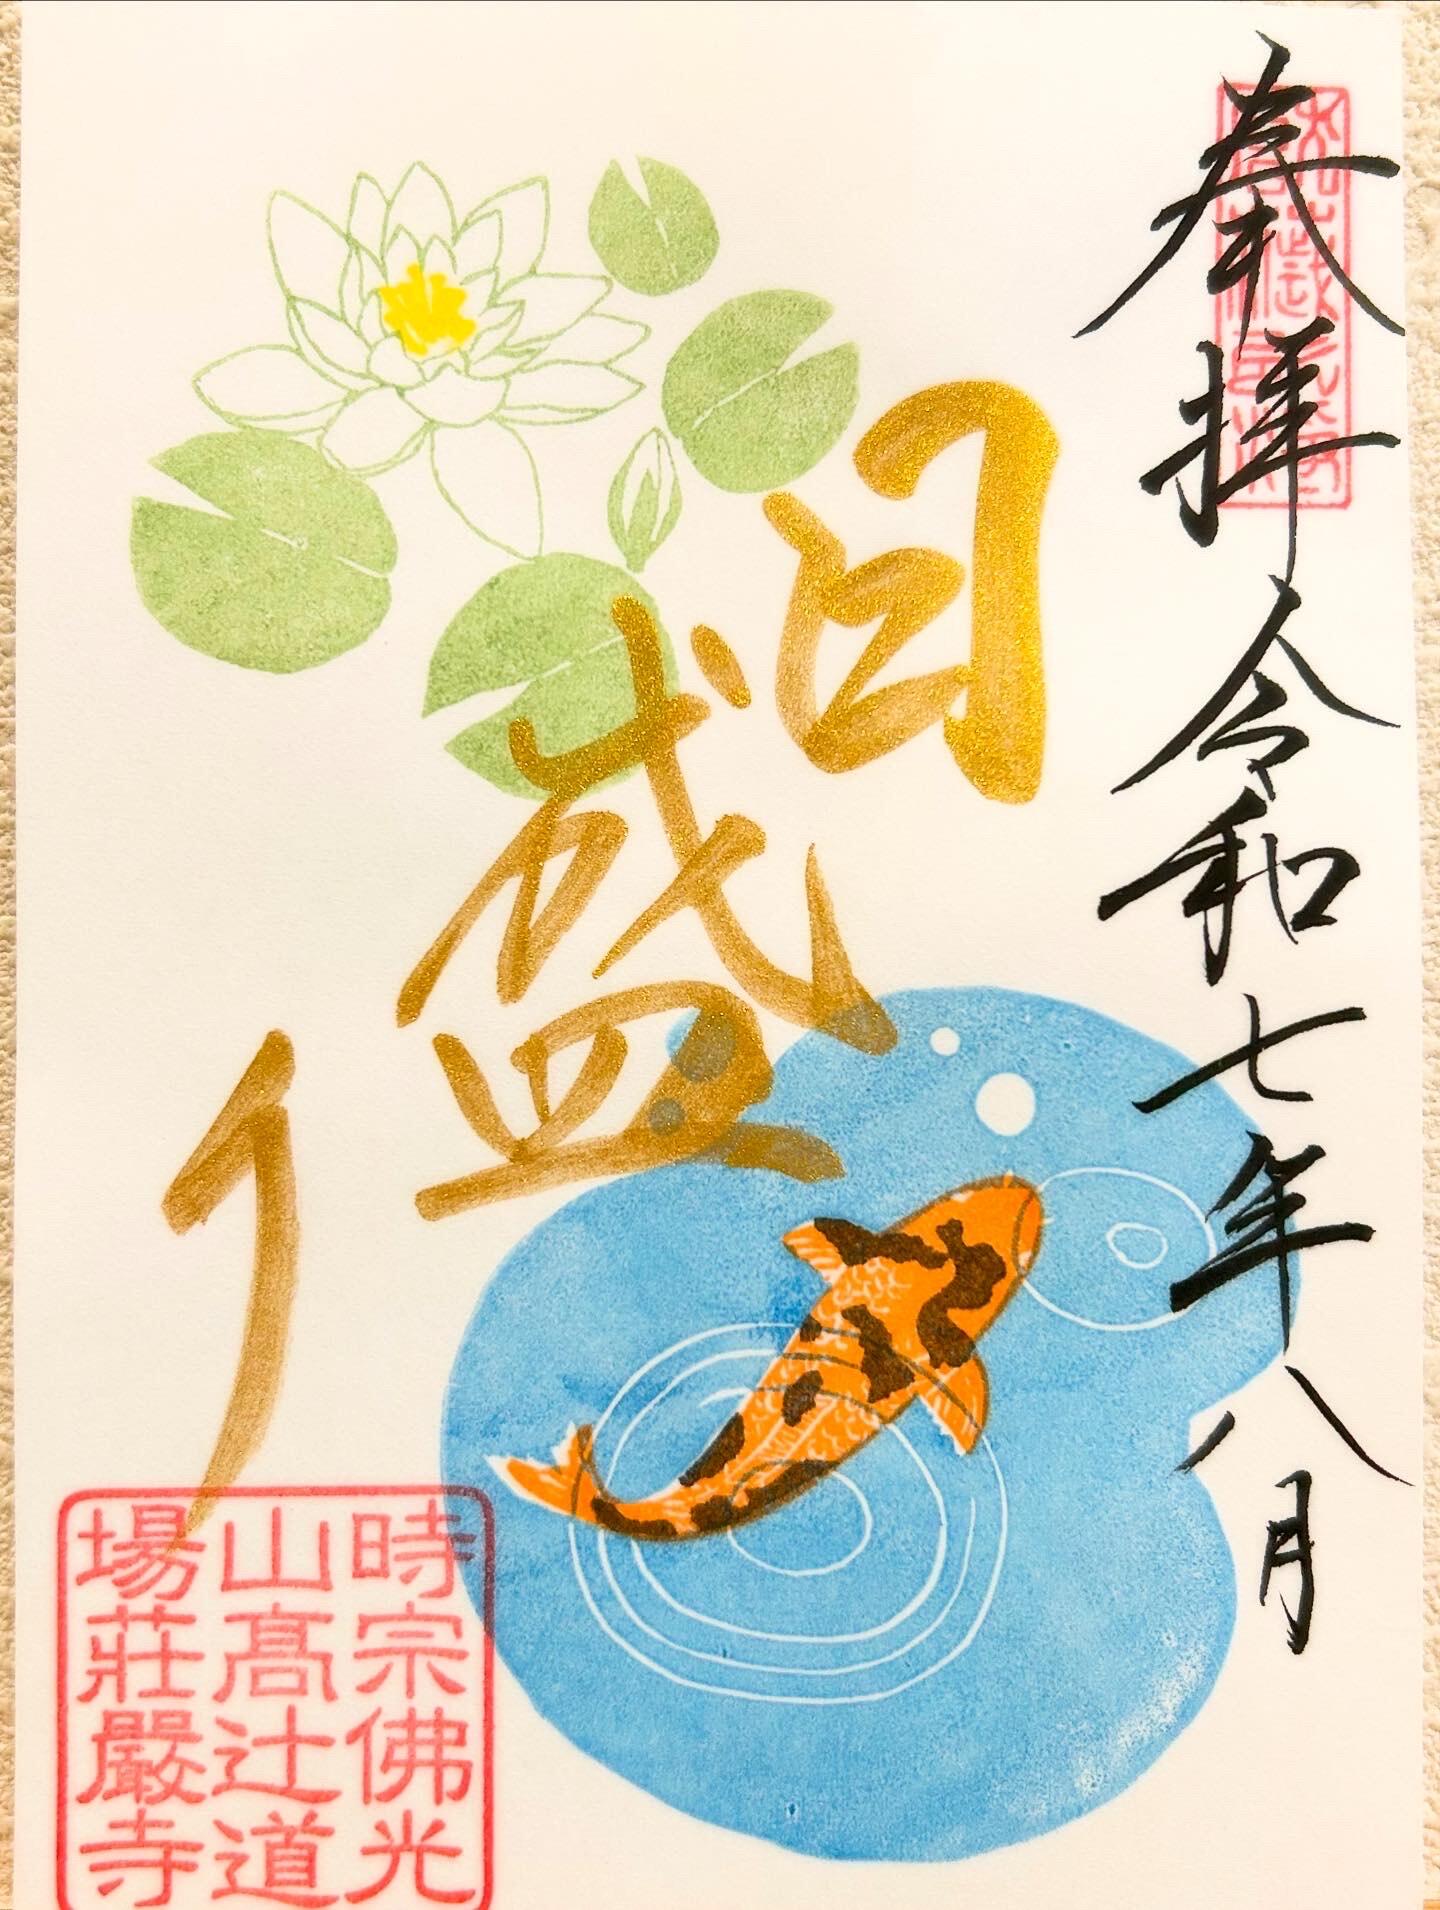 奉拝 令和七年八月
日盛り
時宗佛光
山高辻道
場荘厳寺